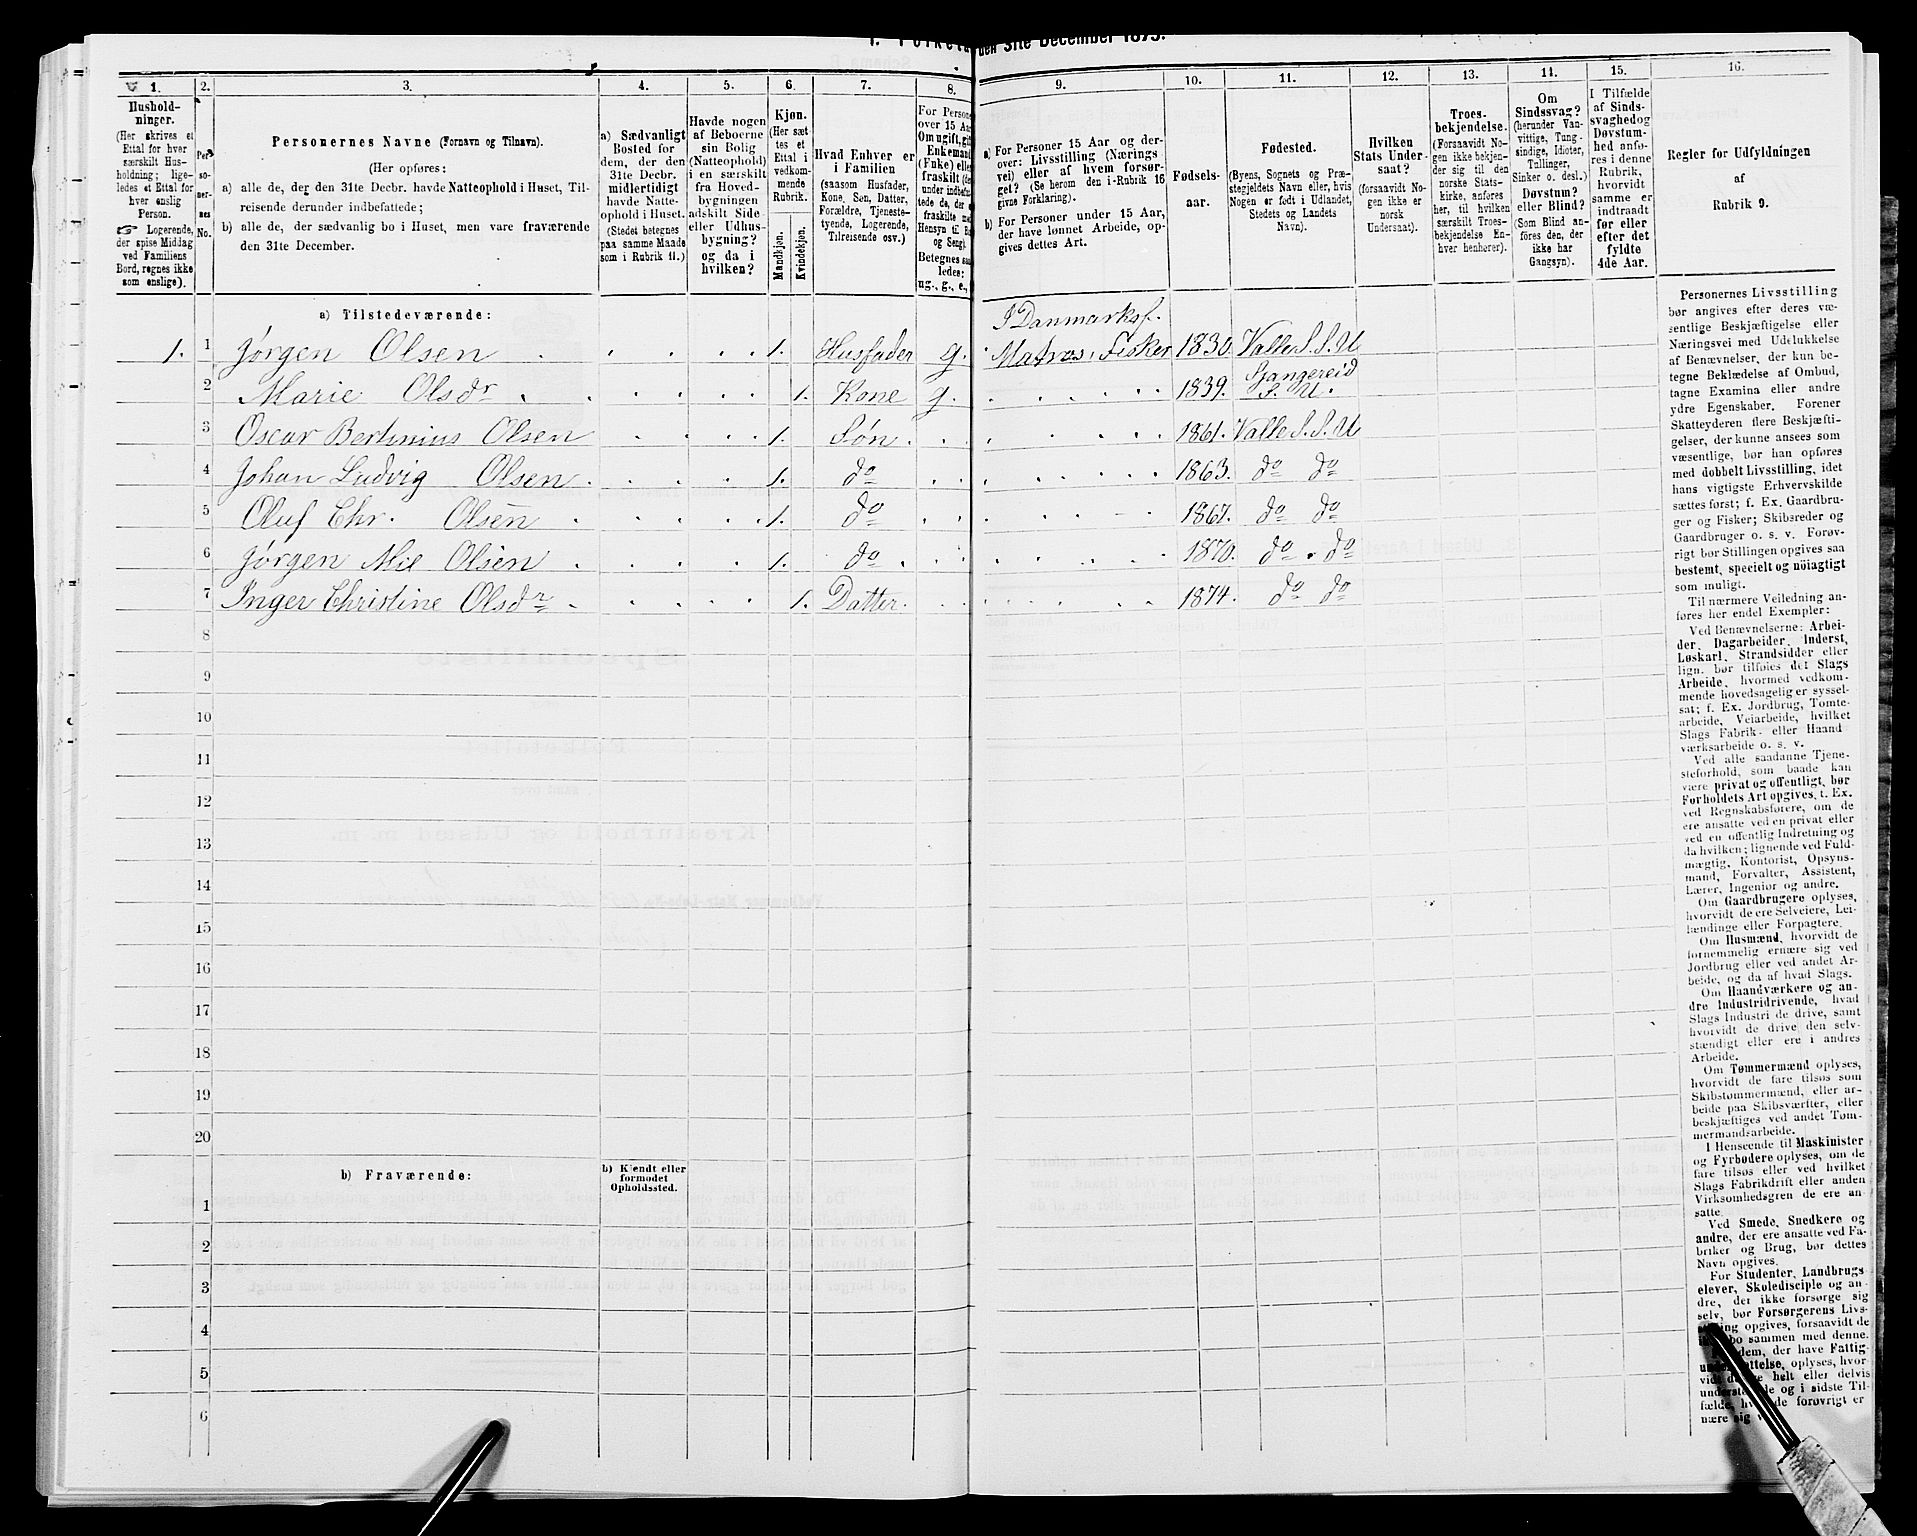 1. Folket den 31te December 1875.
1.
Husholdninger.
(Her skrives et
Ettal for hver
særskilt Husholdning; ligeledes et Ettal for
hver enslig
Person.
☞ Logerende,
der spise Middag
ved Familiens
Bord, regnes ikke
som enslige).
2.
Personernes
No.
3.
Personernes Navne (Fornavn og Tilnavn).
(Her opføres:
a) alle de, der den 31te Decbr. havde Natteophold i Huset, Tilreisende derunder indbefattede;
b) alle de, der sædvanlig bo i Huset, men vare fraværende
den 31te December.
4.
a) Sædvanligt
Bosted for
dem, der den
31te Decbr.
midlertidigt
havde Natteophold i Huset.
(Stedet betegnes
paa samme Maade
som i Rubrik 11.)
5.
Havde nogen
af Beboerne
sin Bolig
(Natteophold)
i en særskilt
fra Hovedbygningen
adskilt Side-
eller Udhusbygning?
og da i
hvilken?
6.
Kjøn.
(Her sættes et
Ettal i
vedkommende
Rubrik.
Mandkjøn.
Kvindekjøn.
7.
Hvad Enhver er
i Familien
(saasom Husfader,
Kone, Søn, Datter,
Forældre, Tjenestetyende, Logerende,
Tilreisende osv.)
8.
For Person
over 15 Aar
Omugift, gift
Enkemand
(Enke) eller
fraskilt
Betegnes saaledes:
ug., g., e.,
9.
a) For Personer 15 Aar og derover: Livsstilling (Næringsvei) eller af hvem forsørget? (Se herom den i Rubrik 16
givne Forklaring).
b) For Personer under 15 Aar,
der have lønnet Arbeide, opgives dettes Art.
10.
Fødselsaar.
11.
Fødested.
(Byens, Sognets og Præstegjeldets Navn eller, hvis
Nogen er født i Udlandet,
Stedets og Landets
Navn).
12.
Hvilken
Stats Undersaat?
(forsaavidt Nogen ikke er
norsk
Undersaat).
13.
Troesbekjendelse.
(Forsaavidt Nogen ikke bekjender sig til den
norske Statskirke, anføres
her, til hvilken
særskilt Troesbekjendelse Enhver henhører).
14.
Om
Sindssvag?
(herunder Vanvittige, Tungsindige, Idioter,
Tullinger,
Sinker o. desl.)
Døvstum?
eller Blind?
(Som Blind anføres den, der
ikke har
Gangsyn).
15.
I Tilfælde
af Sindssvaghed og
Døvstumhed anføres i denne
Rubrik,
hvorvidt
samme er
indtraadt
før eller
efter det
fyldte
4de Aar.
16.
Regler for Udfyldningen
af
Rubrik 9.
a) Tilstedeværende:
I Danmarksf.
1. 1 Jørgen Olsen 1. Husfader g. Matros, Fisker 1830. Valle S. S. U
2 Marie Olsdr 1. Kone g. 1839. Spangereid S. U.
3 Oscar Bertinius Olsen 1. Søn 1861. Valle S. S. U
4 Johan Ludvig Olsen 1. do 1863. do do
5 Oluf Chr. Olsen 1. do 1867. do do
6 Jørgen Olsen 1. do 1870. do do
7 Inger Christine Olsdr 1. Datter 1874. do do
8
9
10
11
12
13
14
15
16
17
18
19
20
b) Fraværende:
b) Kjendt eller
formodet
Opholdssted.
1
2
3
4
5
6
Personernes Livsstilling
bør angives efter deres væsentlige Beskjæftigelse eller
Næringsvei med Udelukkelse
af Benævnelser, der kun betegne Beklædelse af Ombud,
tagne Examina eller andre
ydre Egenskaber. Forener
Skatteyderen flere Beskjæftigelser, der kunne ansees som
væsentlige, bør han opføres
med dobbelt Livsstilling, idet
hans vigtigste Erhvervskilde
sættes først; f. Ex. Gaardbruger og Fisker; Skibsreder og
Gaardbruger o. s. v. Forøvrigt bør Stillingen opgives saa
bestemt, specielt og nöiagtigt
som muligt.
Til nærmere Veiledning anføres her endel Exempler:
Ved Benævnelserne: Arbeider, Dagarbeider, Inderst,
Løskarl, Strandsidder eller
lign. bør tilføies det Slags
Arbeide, hvormed vedkommende hovedsagelig er sysselsat; f. Ex. Jordbrug, Tomtearbeide, Veiarbeide, hvilket
Slags Fabrik- eller Haandværksarbeide o. s. v.
Ved alle saadanne Tjenesteforhold, som baade kan
være privat og offentligt, bør
Forholdets Art opgives, t. Ex.
ved Regnskabsførere, om de
ere ansatte ved en privat eller
ved en offentlig Indretning og
da hvilken; lignende ved Fuldmægtig, Kontorist, Opsynsmand, Forvalter, Assistent,
Lærer, Ingeniør og andre.
Om Gaardbrugere oplyses,
hvorvidt de ere Selveiere, Leilændinge eller Forpagtere.
Om Husmænd, hvorvidt de
fornemmelig ernære sig ved
Jordbrug eller ved andet Arbeide, og da af hvad Slags.
Om Haandværkere og andre Industridrivende, hvad
Slags Industri de drive, samt
hvorvidt de drive den selvstændigt eller ere i andres
Arbeide.
Om Tømmermænd oplyses,
hvorvidt de fare tilsøs som
Skibstømmermænd, eller arbeide paa Skibsværfter, eller
beskjæftiges ved andet Tømmermandsarbeide.
I Henseende til Maskinister
og Fyrbødere oplyses, om de
fare tilsøs eller ved hvilket
Slags Fabrikdrift eller anden
Virksomhedsgren de ere ansatte.
Ved Smede, Snedkere og
andre, der ere ansatte ved Fabriker og Brug, bør dettes
Navn opgives.
For Studenter, Landbrugselever, Skoledisciple og andre, der ikke forsørge sig
selv, bør Forsørgerens Livsstilling opgives, forsaavidt de
bo sammen med denne.
dem, der have Fattigunderstøttelse, oplyses, hvorvidt de helt eller delvis
understøttede og i sidste Tilfælde, hvad de forøvrigt er
nære sig